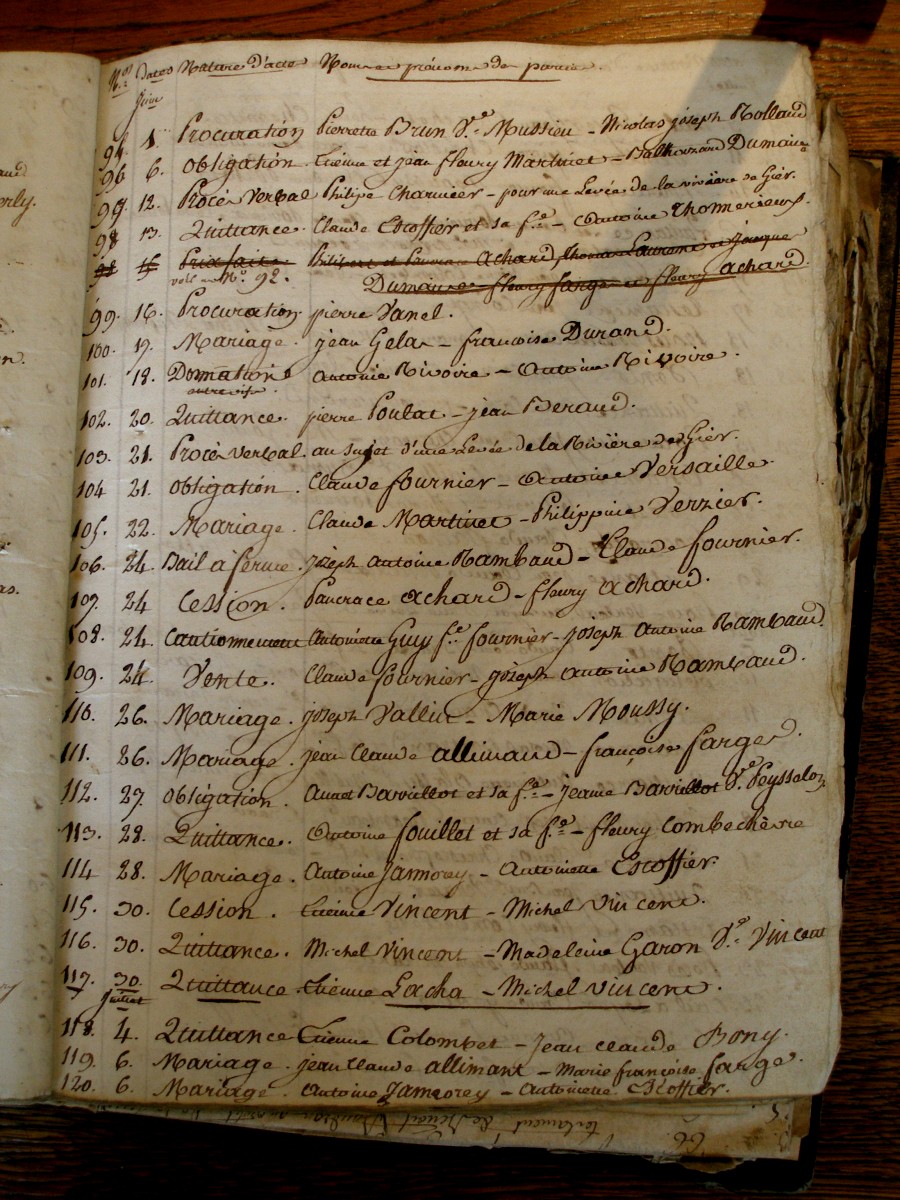 N.os Dates Nature d'acte Noms et prénoms de parties.
Juin
94. 1. Procuration Pierrette Brun V.e Mussieu - Nicolas joseph Rolland
96 6. Obligation Etienne et jean fleury Martinet - Balthazard Dumaine
97. 12. Procès Verbal Philipe Charvier - pour une Levée de la rivière de Gier.
98 13. Quittance. Claude Escoffier et sa f.e - Antoine Thomerieux.
98 15 Prixfait Philibert et Pancrace Achard, Laurent et Jacque
voir N.o 92. Dumaine - fleury farge et fleury Achard.
99. 16. Procuration. pierre Vanel.
100. 17. Mariage. jean Gelas - francoise Durand.
101. 18. Donnation Antoine Rivoire - Antoine Rivoire.
entrevifs.
102. 20. Quittance. pierre Poulat - jean Beraud.
103. 21. Procès verbal. au sujet d'une Levée de la Rivière de Gier.
104 21. Obligation. Claude fournier - Antoine Versaille.
105. 22. Mariage. Claude Martinet - Philippine Verzier.
106. 24. Bail à ferme. joseph Antoine Rambaud - Claude fournier.
107. 24 Cession. Pancrace Achard - fleury Achard.
108. 24. Cautionnement Antoinette Guy f.e fournier - joseph Antoine Rambaud.
109. 24. Vente. Claude fournier - joseph antoine Rambaud.
110. 26. Mariage. joseph Vallin - Marie Moussy.
111. 26. Mariage. jean Claude allimand - françoise farge.
112. 27. Obligation. Barrillot et sa f.e - jeanne Barrillot V.e Peysselon
113. 28. Quittance. Antoine fouillet et sa f.e - fleury Combechèvre
114 28. Mariage. Antoine Jamorey - Antoinette Escoffier
115. 30. Cession. Etienne Vincent - Michel Vincent.
116. 30. Quittance. Michel Vincent - Madeleine Garon V.e Vincent
117. 30. Quittance Etienne Lacha - Michel Vincent.
Juillet
118. 4. Quittance Etienne Colombet - Jean claude Bony.
119. 6. Mariage. jean Claude allimant - Marie françoise farge.
120. 6. Mariage. Antoine Jamorey - Antoinette Escoffier.